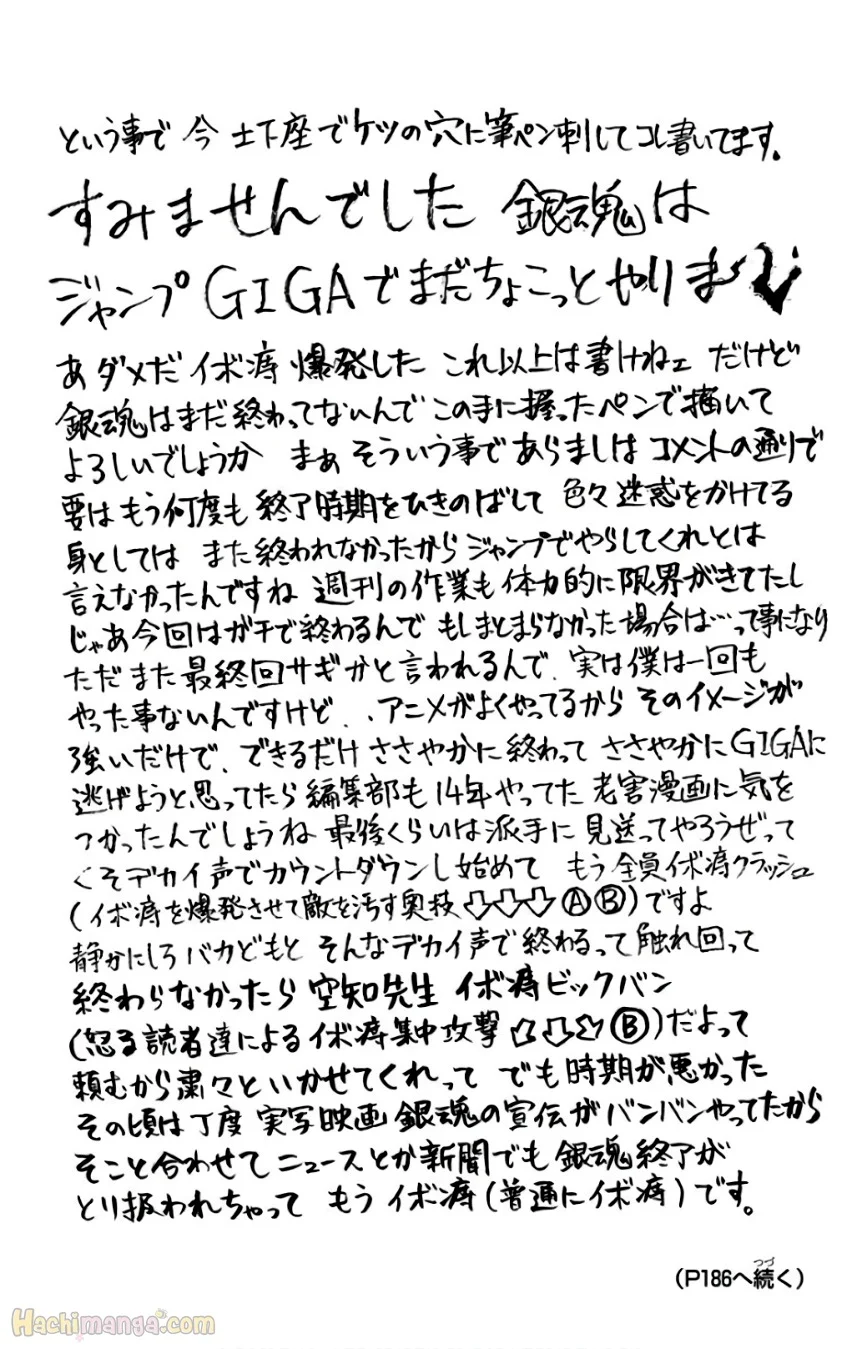 という事で 今 土下座でケツの穴に筆ペン刺してコレ書いてます。
すみませんでした 銀魂は
ジャンプGIGAでまだちょこっとやりま
あダメだ イボ痔 爆発した これ以上は書けねェ だけど
銀魂はまだ終わってないんで この手に握ったペンで描いて
よろしいでしょうか まぁ そういう事で あらましは コメントの通りで
要は もう何度も 終了時期をひきのばして 色々 迷惑をかけてる
身としては また終われなかったから ジャンプでやらしてくれとは
言えなかったんですね 週刊の作業も 体力的に 限界がきてたし
じゃあ今回はガチで終わるんで もしまとまらなかった場合は…って事になり
ただ また 最終回サギかと言われるんで、実は僕は一回も
やった事ないんですけど、、アニメがよくやってるから そのイメージが
強いだけで、できるだけ ささやかに 終わって ささやかにGIGAに
逃げようと思ってたら 編集部も 14年やってた 老害漫画に 気を
つかったんでしょうね 最後くらいは 派手に 見送ってやろうぜって
くそデカイ声でカウントダウンし始めて もう 全員イボ痔クラッシュ
(イボ痔を爆発させて敵を汚す奥技⇩⇩⇩ⒶⒷ)ですよ
静かにしろ バカどもと そんなデカイ声で 終わるって 触れ回って
終わらなかったら 空知先生 イボ痔ビックバン
(怒る読者達によるイボ痔集中攻撃 Ⓑ)だよって
頼むから 粛々と いかせてくれって でも 時期が悪かった
その頃は 丁度 実写映画 銀魂の宣伝が バンバンやってたから
そこと合わせて ニュースとか 新聞でも 銀魂終了が
とり扱われちゃって もう イボ痔(普通にイボ痔)です。
(P186へ続く)
つづ
Hachimanga.com